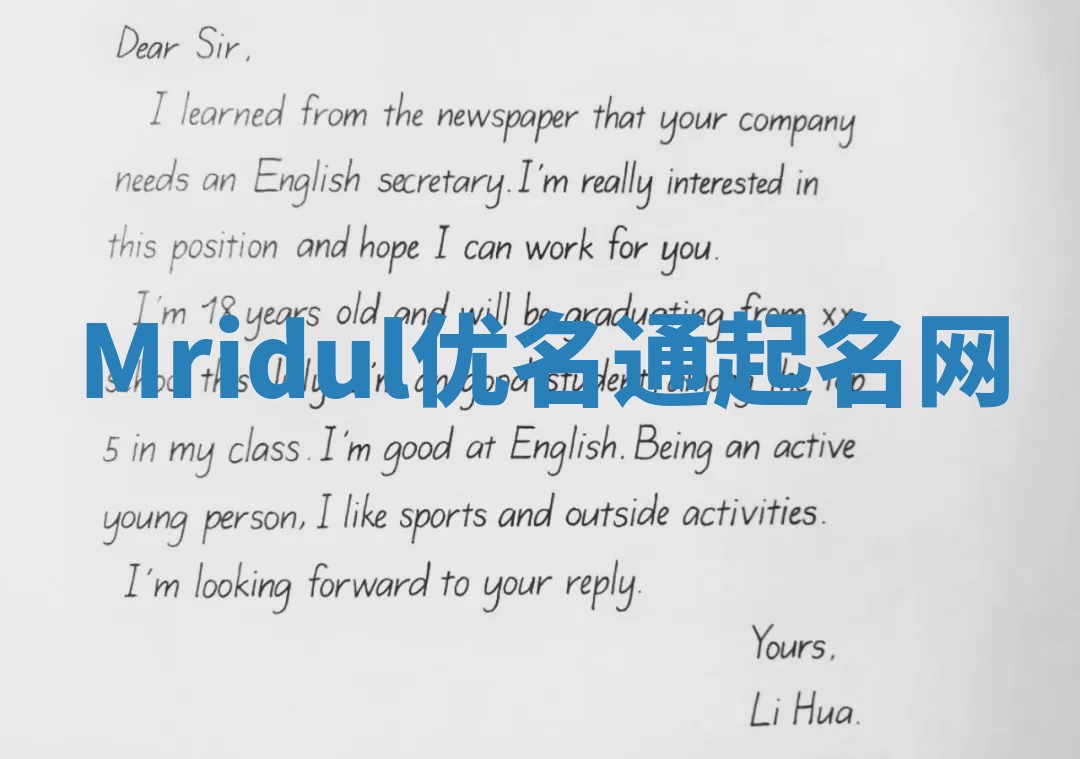 Dear Sir,
I learned from the newspaper that your company
needs an English secretary. I'm really interested in
this position and hope I can work for you.
I'm 18 years old and will be graduating from xx
Mridul优名通起名网
school this July. I'm an good student, among the top
5 in my class. I'm good at English. Being an active
young person, I like sports and outside activities.
I'm looking forward to your reply.
Yours,
Li Hua.